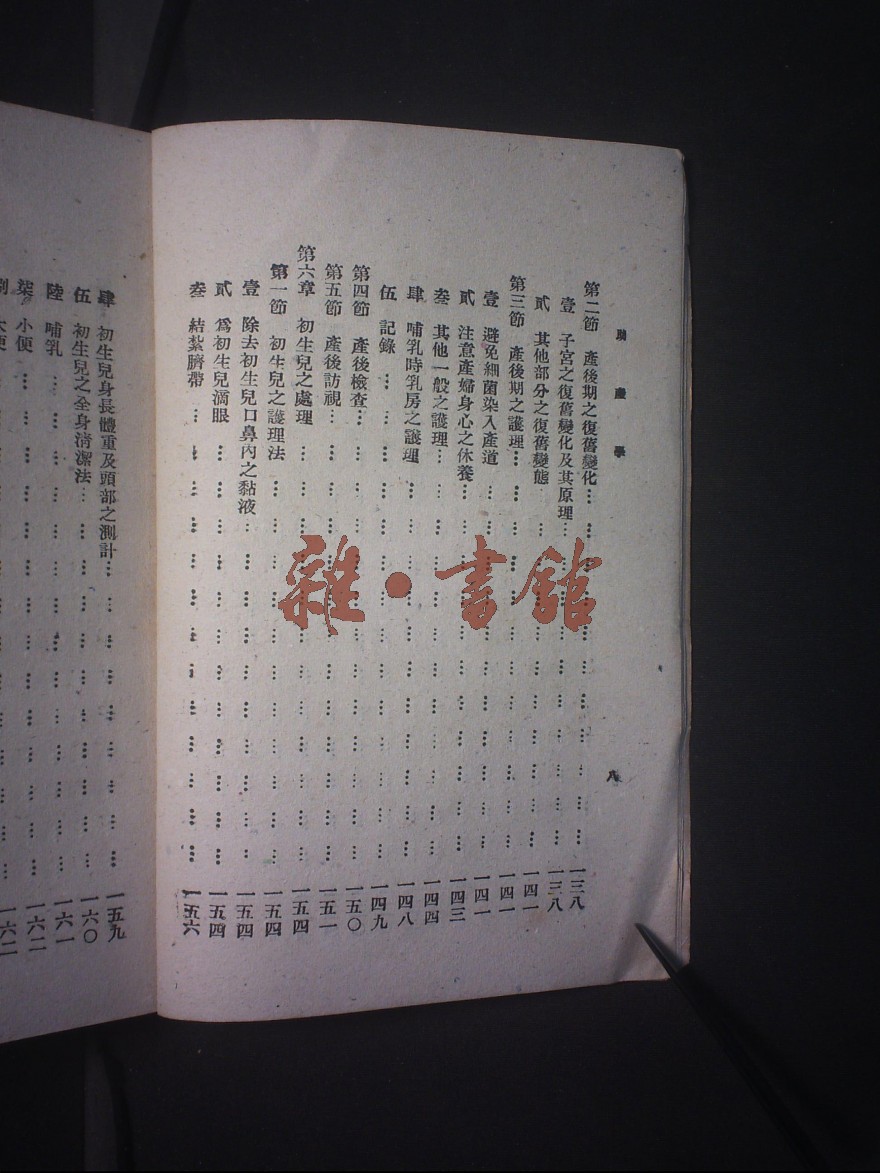 助產學
八
第二節 產後期之復舊變化…………………………一三八
壹 子宮之復舊變化及其原理…………………………一三八
貳 其他部分之復舊變態…………………………一四一
第三節 產後期之護理…………………………一四一
壹 避免細菌染入產道…………………………一四一
貳 注意產婦身心之休養…………………………一四三
叁 其他一般之護理…………………………一四四
肆 哺乳時乳房之護理…………………………一四八
伍 記錄…………………………一四九
第四節 產後檢查…………………………一五〇
第五節 產後訪視…………………………一五一
第六章 初生兒之處理…………………………一五四
第一節 初生兒之護理法…………………………一五四
壹 除去初生兒口鼻內之黏液…………………………一五四
貳 爲初生兒滴眼…………………………一五四
叁 結紮臍帶…………………………一五六
肆 初生兒身長體重及頭部之測計…………………………一五九
伍 初生兒之全身清潔法…………………………一六〇
陸 哺乳…………………………一六一
柒 小便…………………………一六二
大便…………………………一六二
雜·書館